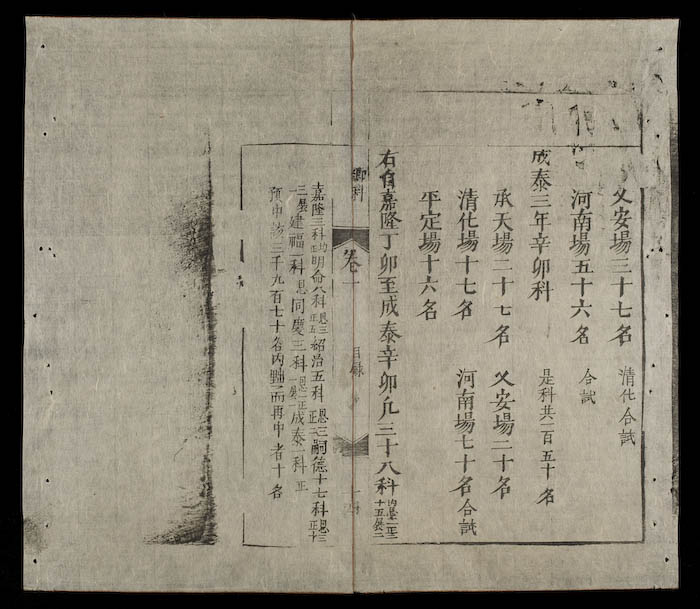 乂安場三十七名 清化合試
河南場五十六名 合試
成泰三年辛卯科 是科共一百五十名
承天場二十七名 乂安場二十名
清化場十七名 河南場七十名合試
平定場十六名
右自嘉隆丁卯至成泰辛卯凡三十八科
鄉科 卷一 目錄
嘉隆三科均正明命八科恩三正五紹治五科恩三正二嗣德十七科恩三正十
三展一建福一科恩同慶三科恩一正一展一成泰一科正
預中三千九百七十名內黜而再中者十名